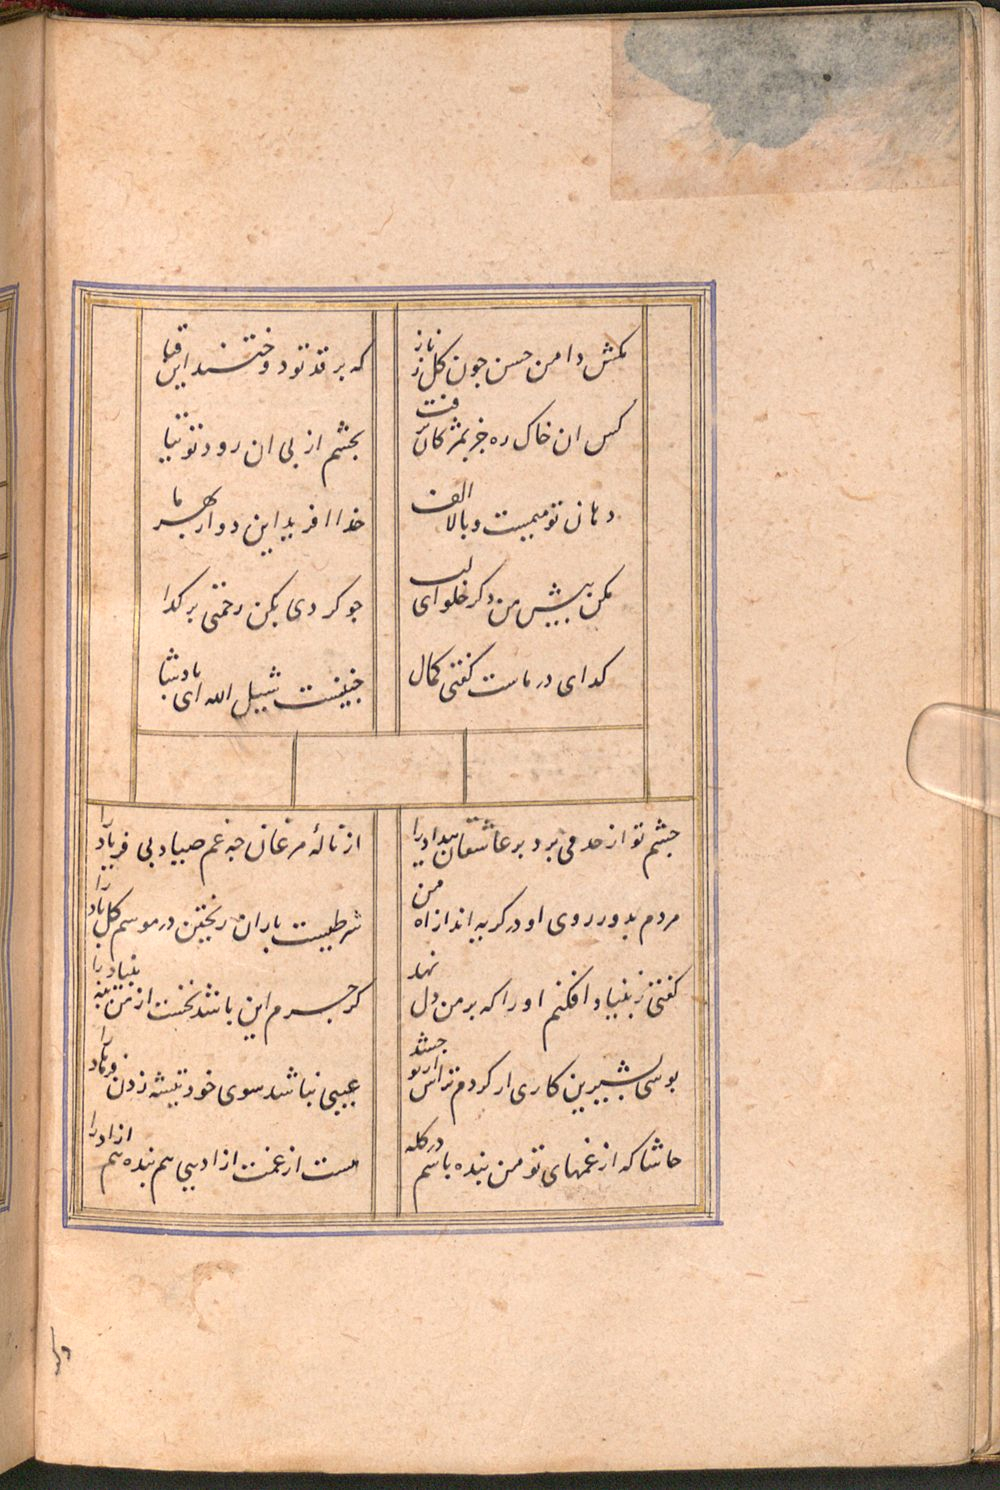 مکش دامن حسن چون کل ز ناز
که بر قد تو دوختند این قبا
کس ان خاک ره جز بمژکان نرفت
بچشم از پی ان رود توتیا
دهان تو میمیست و بالا الف
خدا افرید این دو از بهر ما
مکن پیش من ذکر حلوای لب
چو کردی بکن رحمتی بر کدا
کدای در ماست کفتی کمال
خنیفست شیبل الله ای پادشا
چشم تو از حد می برد بر عاشقان بیداد را
از نالهٔ مرغان چه غم صیاد بی فریاد را
مردم بدور روی او در کریه اند از اه من
شرطیست باران ریختن در موسم کل باد را
کفتی ز بنیاد افکنم اورا که بر من دل نهد
کر جرم این باشد نخست از من بنه بنیاد را
بوسی بشیرین کاری ار کردم تراش از تو چشد
عیبی نباشد سوی خود تیشه زدن فرهاد را
حاشا که از غمهای تو من بنده باشم در کله
هست از غمت ازادیی هم بنده هم ازاد را